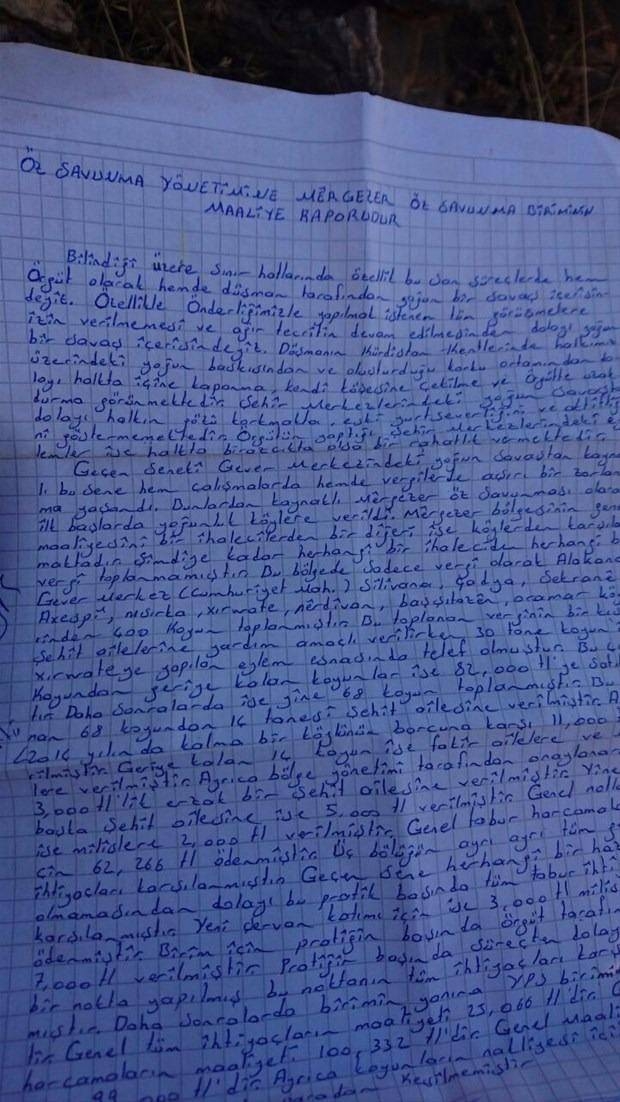 ÖZ SAVUNMA YÖNETİMİNE MÊRGEZER ÖZ SAVUNMA BİRİMİNİN
MAALİYE RAPORUDUR
Bilindiği üzere sınır hatlarında özellil bu son süreçlerde hem
Örgüt olarak hemde düşman tarafından yoğun bir savaş içerisin
deyiz. Özellikle Önderliğimizle yapılmak istenen tüm görüşmelere
izin verilmemesi ve ağır tecritin devam edilmesinden dolayı yoğun
bir savaş içerisindeyiz. Düşmanın Kürdistan Kentlerinde halkımız
üzerindeki yoğun baskısından ve oluşturduğu korku ortamından do
layı halkta içine kapanma, kendi köşesine çekilme ve Örgütte uzak
durma görünmektedir. Şehir Merkezlerindeki yoğun savaştan
dolayı halkın gözü korkmakta, eski yurtseverliğini ve aktifliği
ni göstermemektedir. Örgütün yaptığı şehir Merkezlerindeki ey
lemler ise halkta birazcıkta olsa bir rahatlık vermektedir.
Geçen Seneki Gever Merkezindeki yoğun savaştan kayna
lı bu sene hem çalışmalarda hemde vergilerde aşırı bir zorlan
ma yaşandı. Bunlardan kaynaklı Mêrgezer öz savunması olara
ilk başlarda yoğunluk köylere verildi. Mêrgezer bölgesinin gene
maaliyesini bir ihalecilerden bir diğeri ise köylerden karşıla
maktadır. Şimdiye kadar herhangi bir ihaleciden herhangi b
vergi toplanmamıştır. Bu bölgede sadece vergi olarak Alakan
Gever Merkez (Cumhuriyet Mah.) Silivana, Şadya, Sekranê
Axespî, nısırka, xırwate, nêrdivan, oramar kö
rinden 400 Koyun toplanmıştır. Bu toplanan verginin bir kıs
Şehit ailelerine yardım amaçlı verilirken 30 tane koyun
xırwate ye yapılan eylem esnasında telef olmuştur. Bu
Koyundan geriye kalan koyunlar ise 82,000 tl ye satıl
tır. Daha sonralarda ise yine 68 koyun toplanmıştır. Bu
nan 68 koyundan 14 tanesi Şehit ailesine verilmiştir. A
(2014 yılında kalma bir köylünün borcuna karşı 11,000
rilmiştir. Geriye kalan 14 koyun ise fakir ailelere ve
lere verilmiştir. Ayrıca bölge yönetimi tarafından onaylanara
3,000 tl'lik erzak bir Şehit ailesine verilmiştir. Yine
başka Şehit ailesine ise 5,000 tl verilmiştir. Genel
ise milislere 2,000 tl verilmiştir. Genel tabur harcamala
çin 62,266 tl ödenmiştir. Üç bölüğün ayrı ayrı tüm
ihtiyaçları karşılanmıştır. Geçen sene herhangi bir ha
olmamasından dolayı bu pratik başında tüm tabur ihti
karşılanmıştır. Yeni şervan katımı için ise 3,000 tl milis
ödenmiştir. Birim için pratiğin başında örgüt tarafın
7,000 tl verilmiştir. Pratiğin başında süreçten dolay
bir nokta yapılmış bu noktanın tüm ihtiyaçları karş
mıştır. Daha sonralarda birimin yanına YPS birimi
tir. Genel tüm ihtiyaçların maaliyeti 25,066 tl'dir.
harcamaların maaliyeti 100,332 tl'dir. Genel Maali
99,000 tl'dir. Ayrıca koyunların nakliyesi içi
Kesilmemiştir